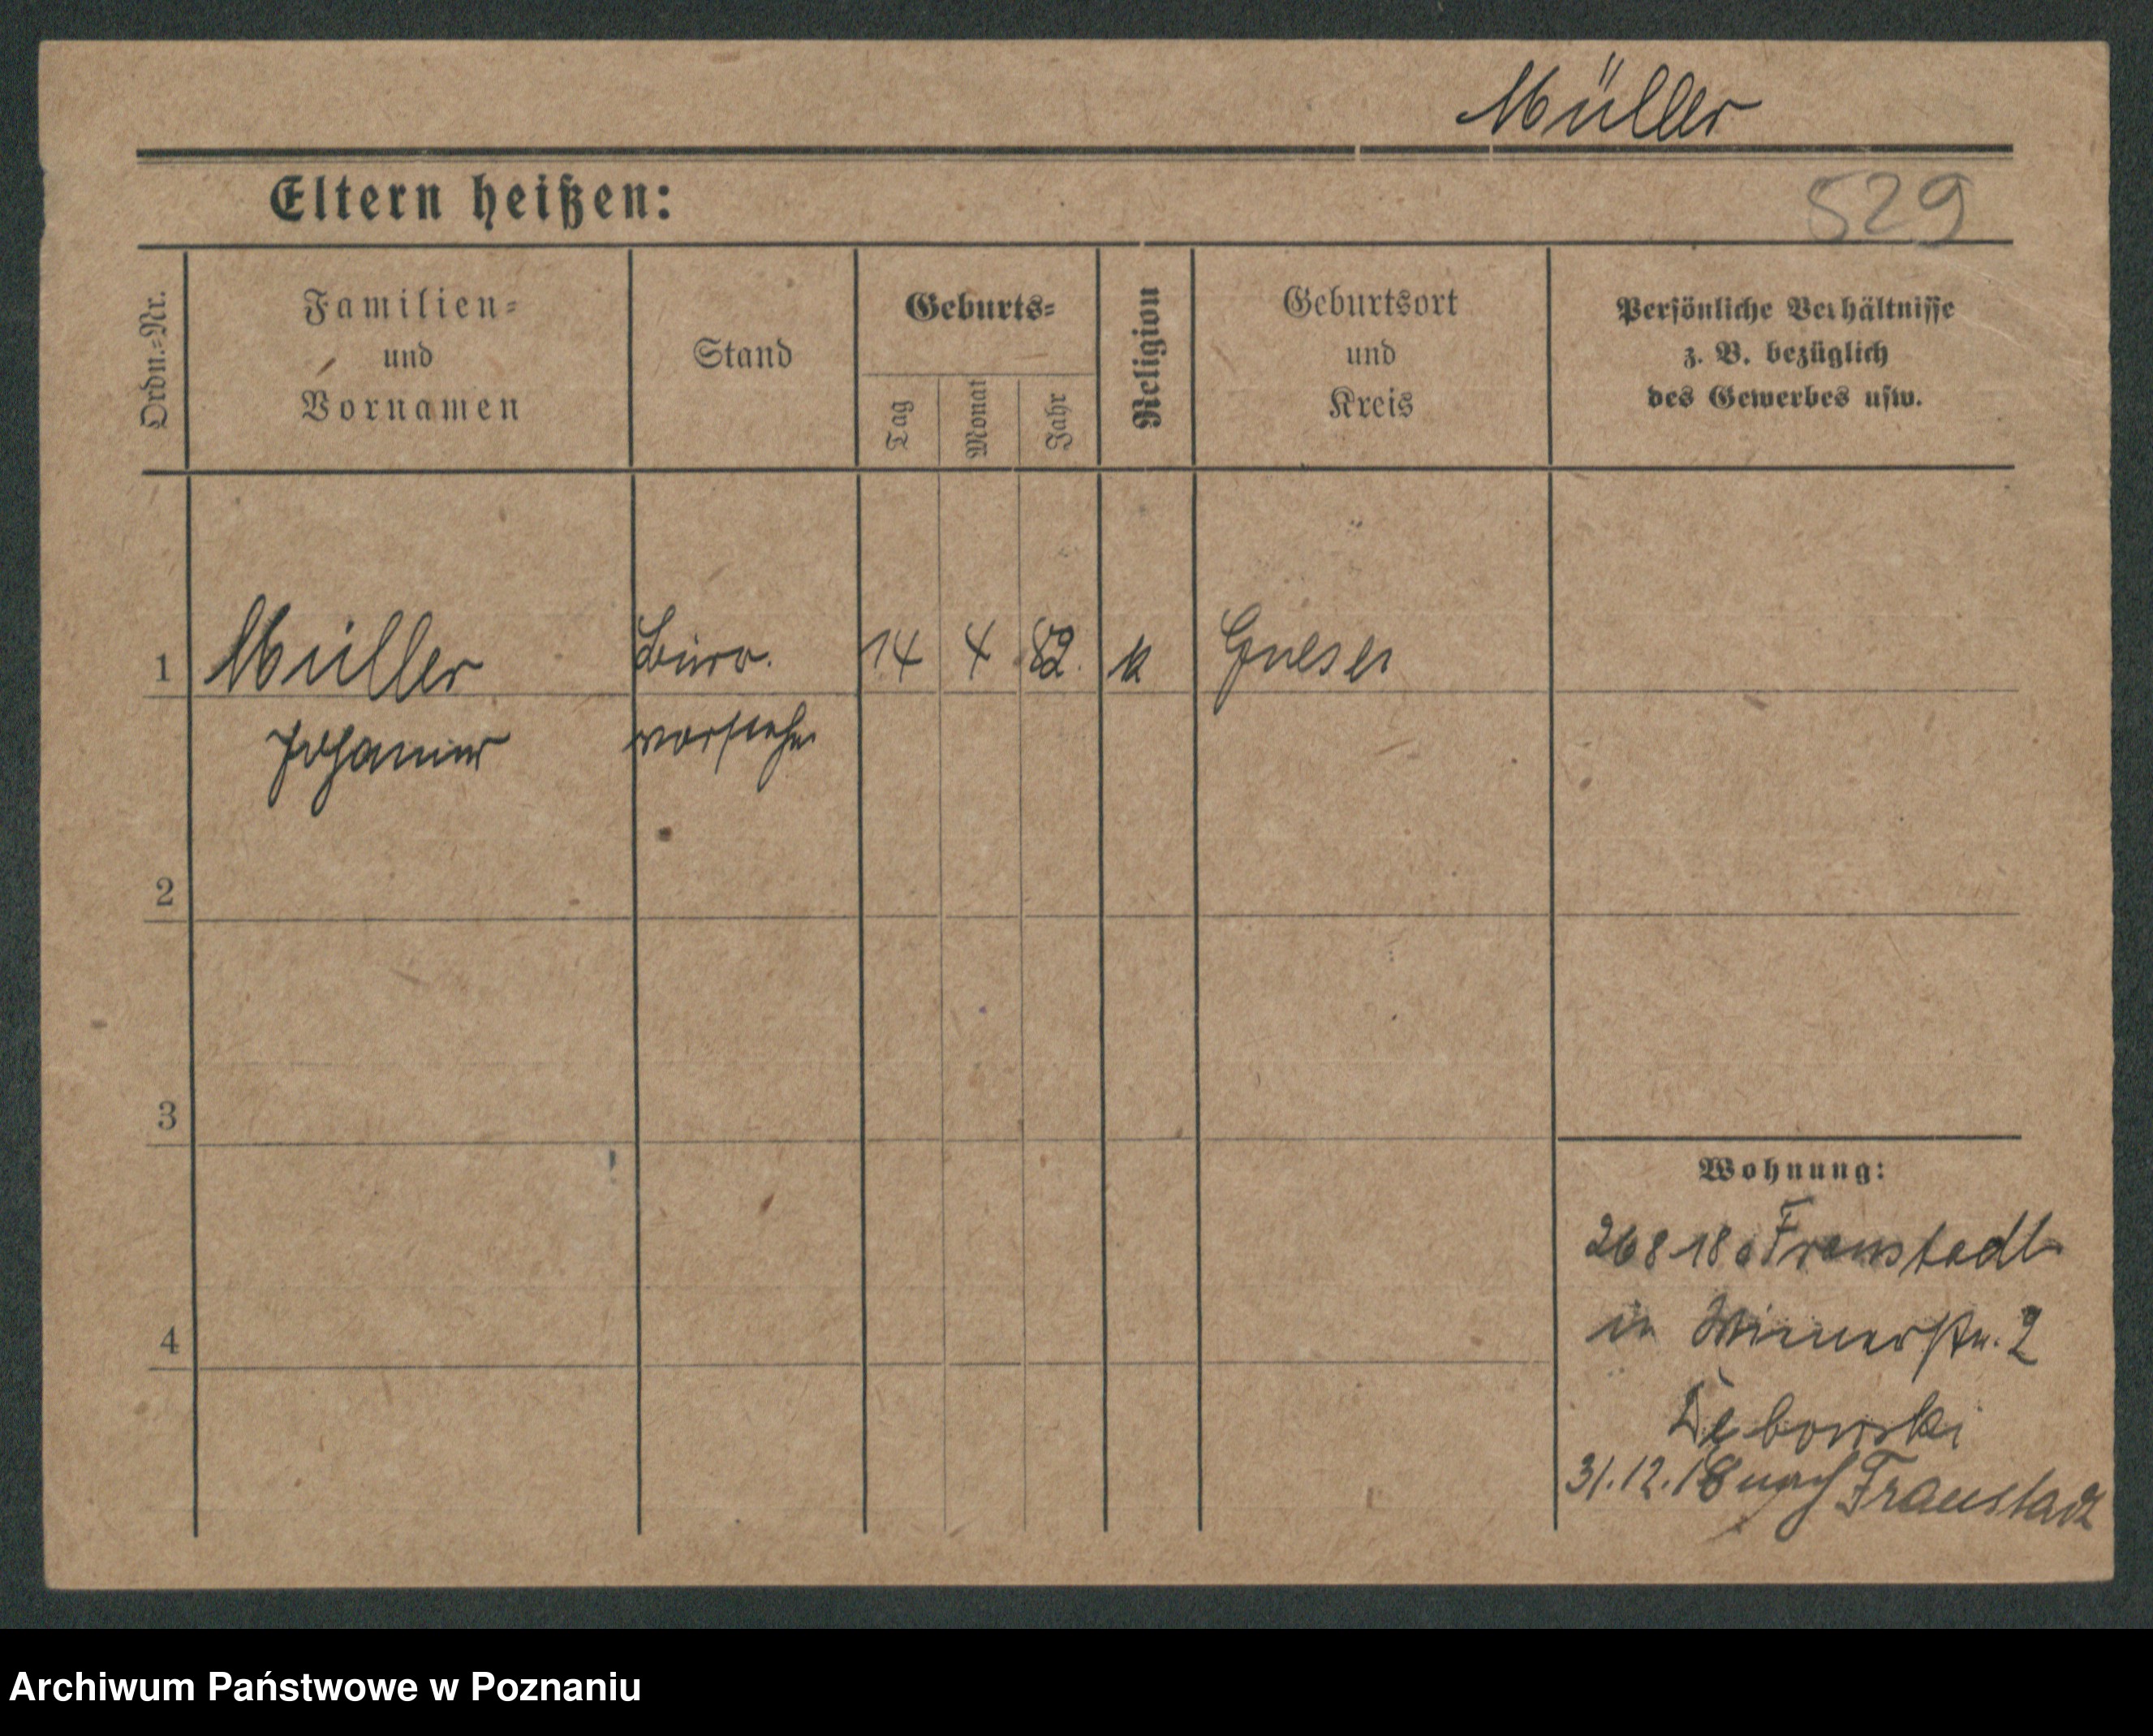 Müller
Eltern heißen:
529
Ordn.-Nr.
Familien-
und
Vornamen
Stand
Geburts-
Tag
Monat
Jahr
Religion
Geburtsort
und
Kreis
Persönliche Verhältnisse
z. B. bezüglich
des Gewerbes usw.
1 Müller Büro. 14 4 82. k Gnesen
vorsteher
2
3
4
Wohnung:
26 8 18 Fraustadt
in 2
Dębowski
31.12.18 nach Fraustadt
Archiwum Państwowe w Poznaniu